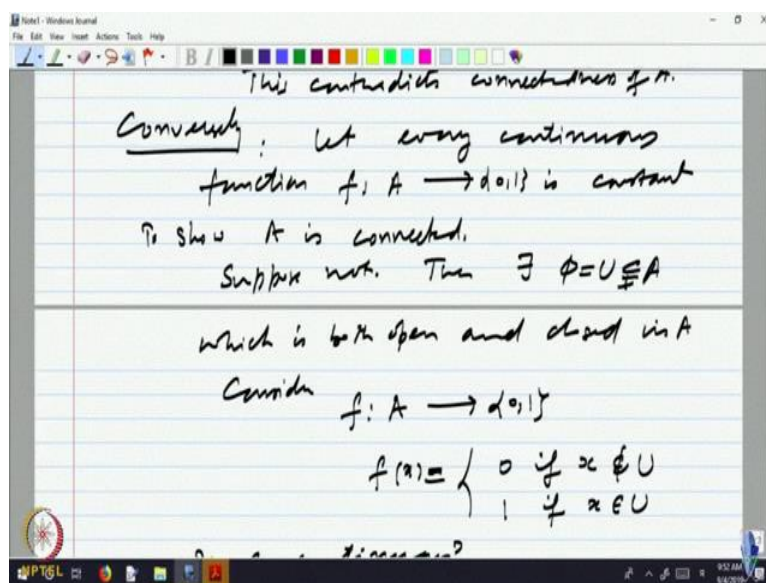 Note1 - Windows Journal
File Edit View Insert Actions Tools Help
This contradicts connectedness of A.
Conversely : Let every continuous
function f: A → {0,1} is constant
To show A is connected.
Suppose not. Then ∃ φ=U⊊A
which is both open and closed in A
Consider
f: A → {0,1}
f(x)= { 0 if x ∉ U
1 if x ∈ U
NPTEL
9:52 AM